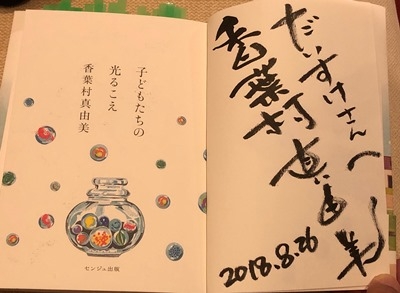 子どもたちの
光るこえ
香葉村真由美
センジュ出版
だいすけさんへ
香葉村真由美
2018.8.26